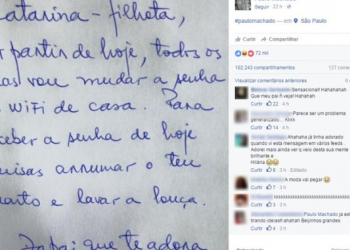 atarina - filhota,
partir de hoje, todos os
as vou mudar a senha
WiFi de casa. Para
ceber a senha de hoje
uisas arrumar o teu
uarto e lavar a louça.
Papai que te adora
Seguir
#paulomachado São Paulo
Curtir Comentar Compartilhar
72 mil
102.243 compartilhamentos
Visualizar comentários anteriores
Sensacional! Hahahahah
Que meu pai ñ veja! Hahahah
Curtir
Parece ser um problema
generalizado... Kkkk
Curtir
Ahahaha já tinha adorado
quando vi esta mensagem em vários feeds
Adorei mais ainda ver q veio desta sua mente
brilhante e
Hilária
Curtir
A moda vai pegar!
Curtir
Paulo Machado ja estou
Beijinhos grandes
Curtir